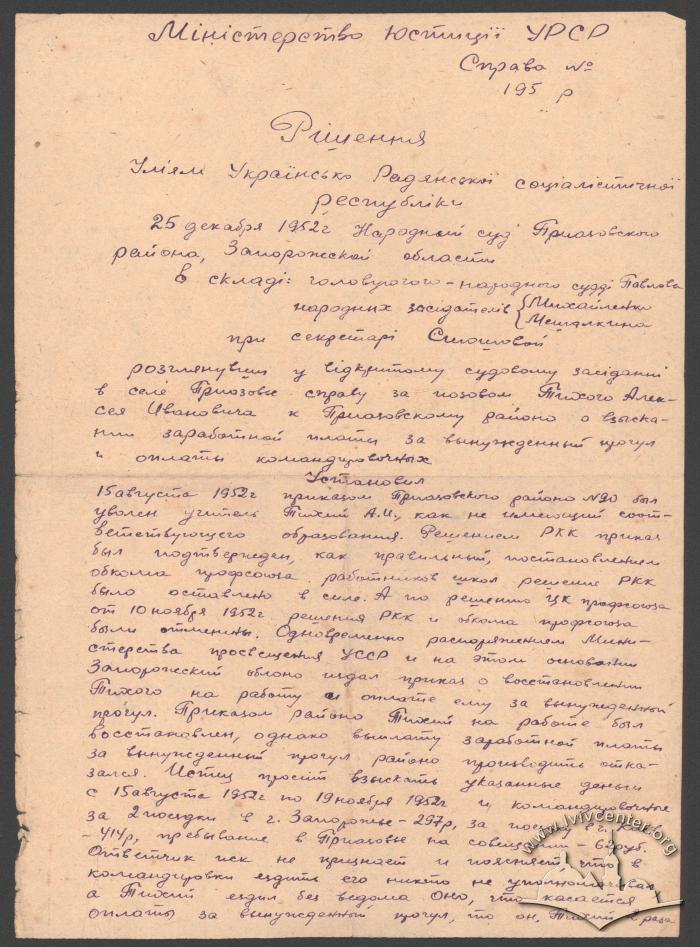 Міністерство Юстиції УРСР
Справа №
195 р
Рішення
Ім'ям Українсько Радянської соціалістичної
республіки
25 декабря 1952г Народный суд Приазовского
района, Запорожской области
В складі: головуючого - народного судді Павлова
народних засідателів { Михайленко
Мешалкина
при секретарі
розглянувши у відкритому судовому засіданні
в селе Приазовье справу за позовом Тихого Алек-
сея Ивановича к Приазовскому районо о взыска-
нии заработной платы за вынужденный прогул
и оплаты командировочных
Установил
15 августа 1952г приказом Приазовского районо №90 был
уволен учитель Тихий А.И., как не имеющий соот-
ветствующего образования. Решением РКК приказ
был подтвержден, как правильный, постановлением
обкома профсоюза работников школ решение РКК
было оставлено в силе. А по решению ЦК профсоюза
от 10 ноября 1952г решения РКК и обкома профсоюза
были отменены. Одновременно распоряжением Мини-
стерства просвещения УССР и на этом основании
Запорожский облоно издал приказ о восстановлении
Тихого на работу и оплате ему за вынужденный
прогул. Приказом районо Тихий на работе был
восстановлен, однако выплату заработной платы
за вынужденный прогул районо производить отка-
зался. Истец просит взыскать указанные деньги
с 15 августа 1952г по 19 ноября 1952г и командировочные
за 2 поездки в г. Запорожье - 297р, за поездку в г.
- 414р, пребывание в Приазовье на совещании - руб.
Ответчик иск не признает и поясняет, что в
командировки ездить его никто не уполномочивал,
а Тихий ездил без ведома Оно, что касается
оплаты за вынужденный прогул, то он, Тихий в
www.lvivcenter.org